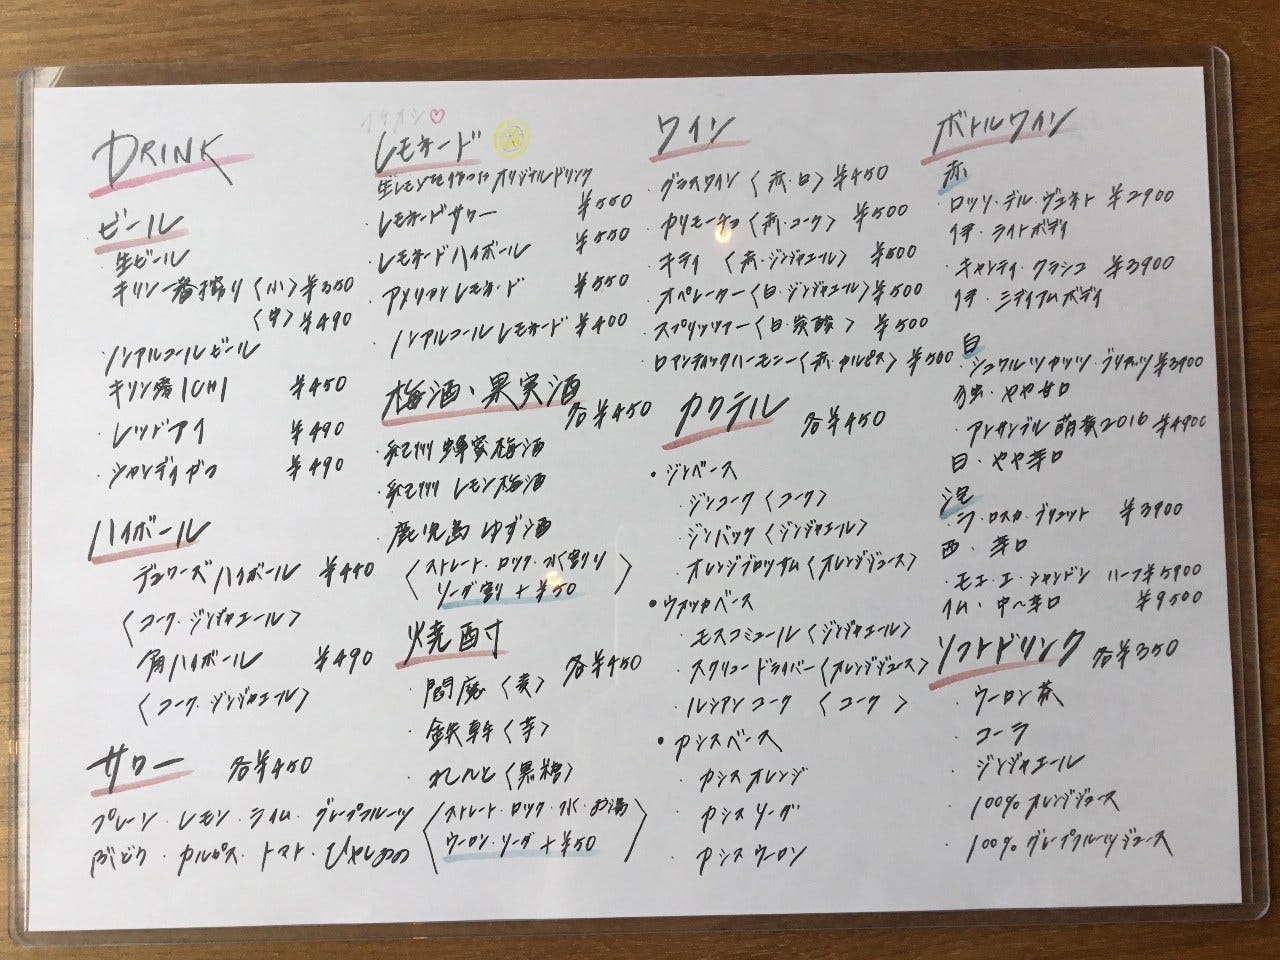 DRINK
ビール
・生ビール
キリン一番搾り〈小〉¥350
〈中〉¥490
・ノンアルコールビール
キリン零ICHI ¥450
・レッドアイ ¥490
・シャンディガフ ¥490
ハイボール
・デュワーズハイボール ¥440
〈コーク・ジンジャエール〉
・角ハイボール ¥490
〈コーク・ジンジャエール〉
サワー 各¥450
プレーン・レモン・ライム・グレープフルーツ
・カルピス・トマト・
イチオシ♡
レモネード
生レモンを使ったオリジナルドリンク
・レモネードサワー ¥550
・レモネードハイボール ¥550
・アメリカンレモネード ¥550
・ノンアルコールレモネード ¥400
梅酒・果実酒 各¥450
・紀州 蜂蜜梅酒
・紀州 レモン梅酒
・鹿児島 ゆず酒
〈ストレート・ロック・水割り
ソーダ割り+¥50〉
焼酎 各¥450
・閻魔〈麦〉
・鉄幹〈芋〉
・れんと〈黒糖〉
〈ストレート・ロック・水・お湯
ウーロン・ソーダ+¥50〉
ワイン
・グラスワイン〈赤・白〉¥450
・カリモーチョ〈赤・コーク〉¥500
・キティ〈赤・ジンジャエール〉¥500
・オペレーター〈白・ジンジャエール〉¥500
・スプリッツァー〈白・炭酸〉¥500
・ロマンティックハーモニー〈赤・カルピス〉¥500
カクテル 各¥450
・ジンベース
ジンコーク〈コーク〉
・ジンバック〈ジンジャエール〉
・オレンジブロッサム〈オレンジジュース〉
・ウォッカベース
・モスコミュール〈ジンジャエール〉
・スクリュードライバー〈オレンジジュース〉
・ルシアンコーク〈コーク〉
・カシスベース
・カシスオレンジ
・カシスソーダ
・カシスウーロン
ボトルワイン
赤
・ロッソ・デル・ヴェネト ¥2900
伊・ライトボディ
・キャンティ・クラシコ ¥3900
伊・ミディアムボディ
白
・シュワルツカッツ・ ¥3900
独・やや甘口
・アッサンブル 萌黄2016 ¥4900
日・やや辛口
泡
・ラ・ロスカ・ブリュット ¥3900
西・辛口
・モエ・エ・シャンドン ハーフ¥5900
仏・中〜辛口 ¥9500
ソフトドリンク 各¥350
・ウーロン茶
・コーラ
・ジンジャエール
・100%オレンジジュース
・100%グレープフルーツジュース